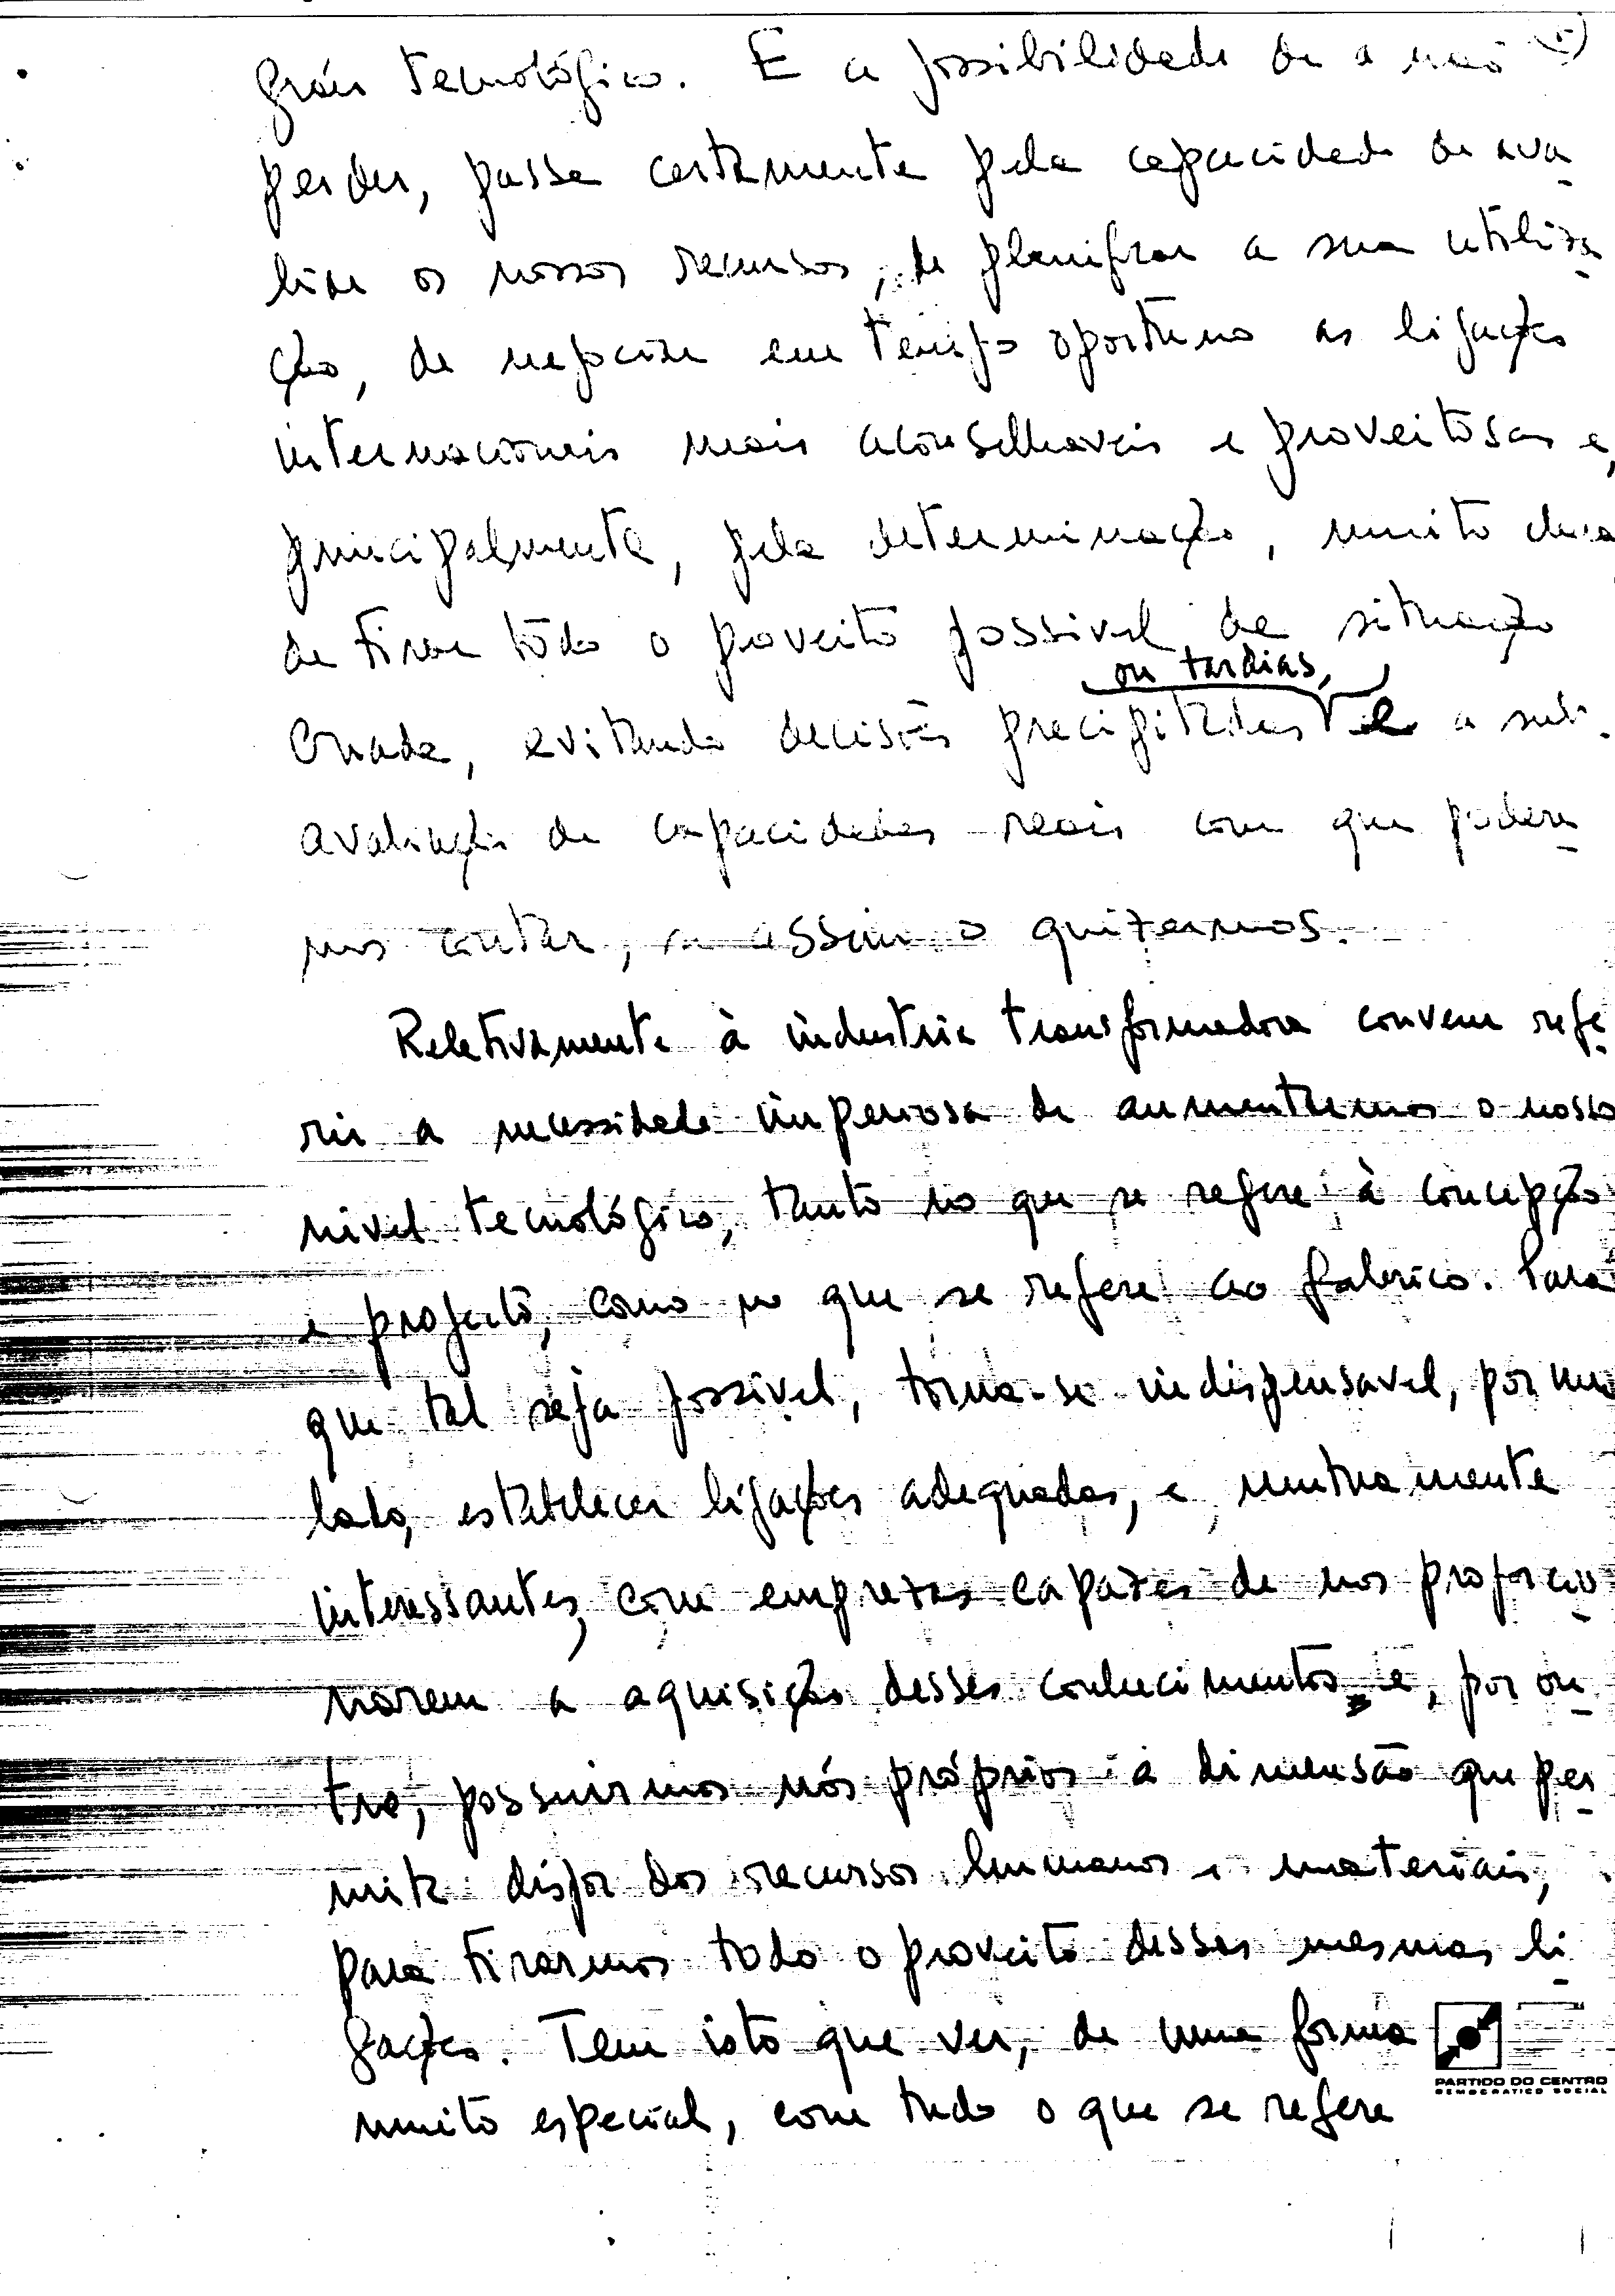 grau tecnológico. E a possibilidade de a não
perder, passa certamente pela capacidade de ava
liar os nossos recursos, de planificar a sua utiliza
ção, de negociar em tempo oportuno as ligações
internacionais mais aconselhaveis e proveitosas e,
principalmente, pela determinação, muito clara
de tirar todo o proveito possivel de situação
ou tardias,
criada, evitando decisões precipitadas e a sub.
avaliação de capacidades reais com que podere
mos contar, se assim o quizermos.
Reletivamente à industria transformadora convem refe
rir a necessidade imperiosa de aumentarmos o nosso
nivel tecnológico, tanto no que se refere à concepção
e projecto, como no que se refere ao fabrico. Para
que tal seja possivel, torna-se indispensavel, por um
lado, estabelecer ligações adequadas, e mutuamente
interessantes, com emprezas capazes de nos proporcio
narem a aquisição desses conhecimentos e, por ou
tro, possuirmos nós próprios a dimensão que per
mita dispor dos recursos humanos e materiais,
para tirarmos todo o proveito dessas mesmas li
gações. Tem isto que ver, de uma forma
muito especial, com tudo o que se refere
PARTIDO DO CENTRO
DEMOCRATICO SOCIAL